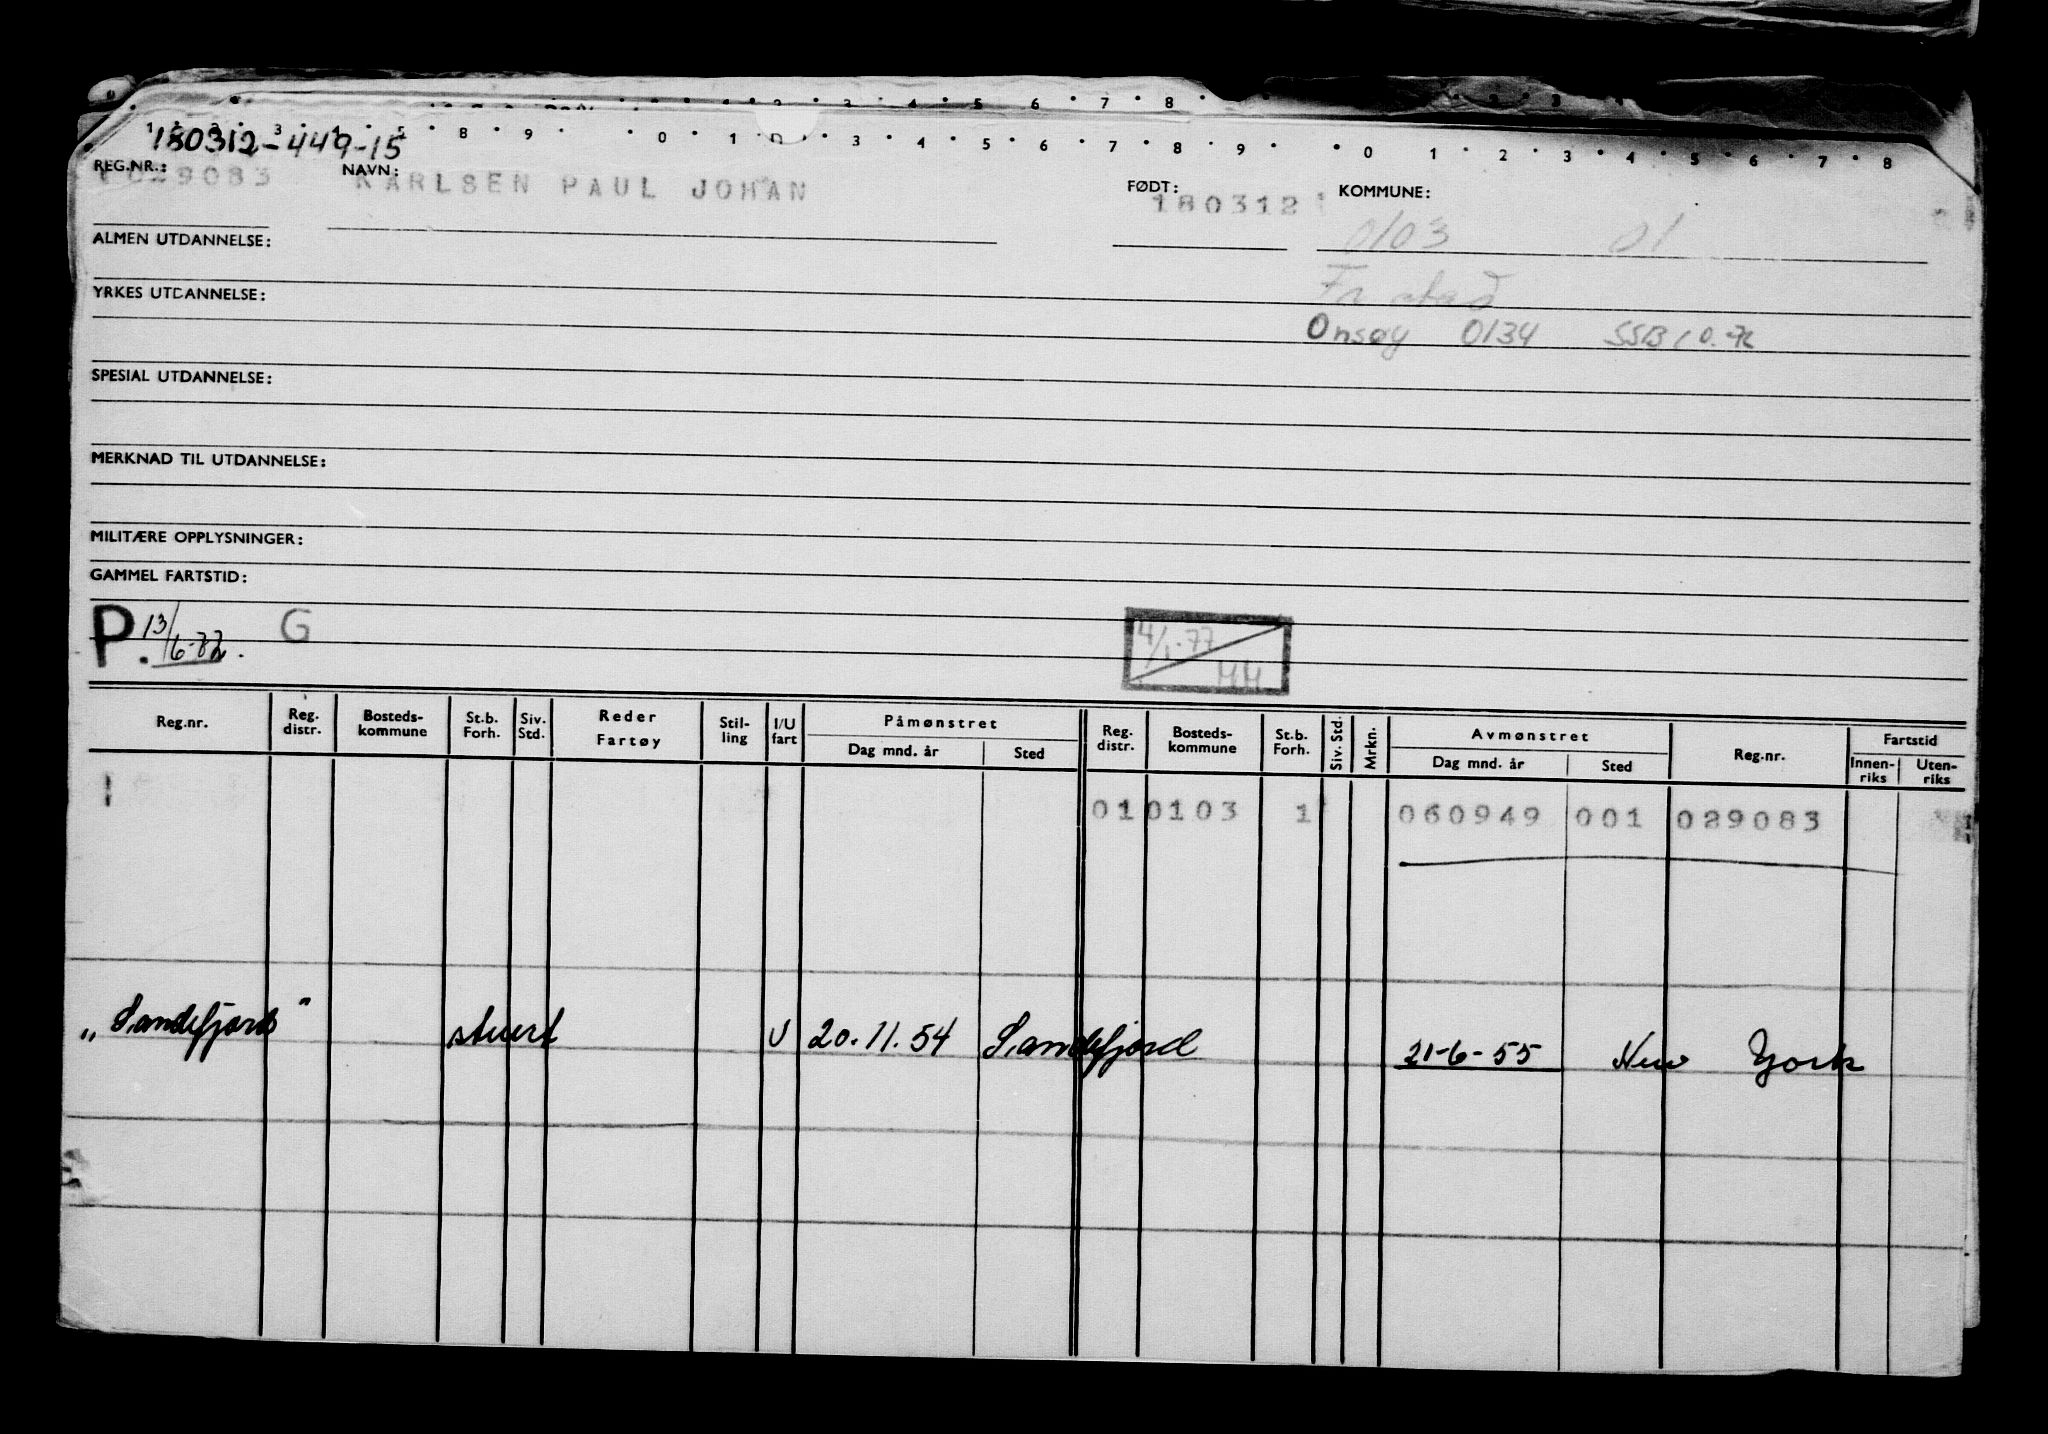 180312-449-15
REG.NR.: 029083 NAVN: KARLSEN PAUL JOHAN FØDT: 180312 KOMMUNE: 0103 01
ALMEN UTDANNELSE: Fr stad
YRKES UTDANNELSE:
Onsøy 0134 SSB
SPESIAL UTDANNELSE:
MERKNAD TIL UTDANNELSE:
MILITÆRE OPPLYSNINGER:
GAMMEL FARTSTID:
P. 13/6-82. G 4/1-77 HH
Reg.nr. Reg. distr. Bosteds-kommune St.b. Forh. Siv. Std. Reder Fartøy Stil-ling I/U fart Påmønstret Dag mnd. år Sted Reg. distr. Bosteds-kommune St.b. Forh. Siv. Std. Mrkn. Avmønstret Dag mnd. år Sted Reg.nr. Fartstid Innen-riks Uten-riks
01 0103 1 060949 001 029083
„Sandefjord" stuert U 20.11.54 Sandefjord 21-6-55 New York